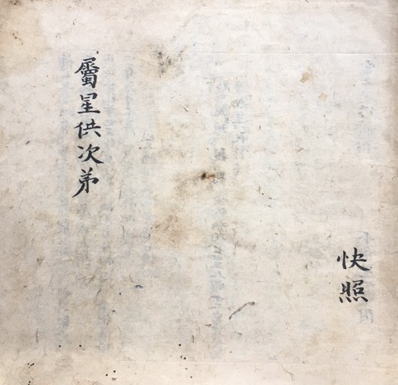 快照
屬星供次弟